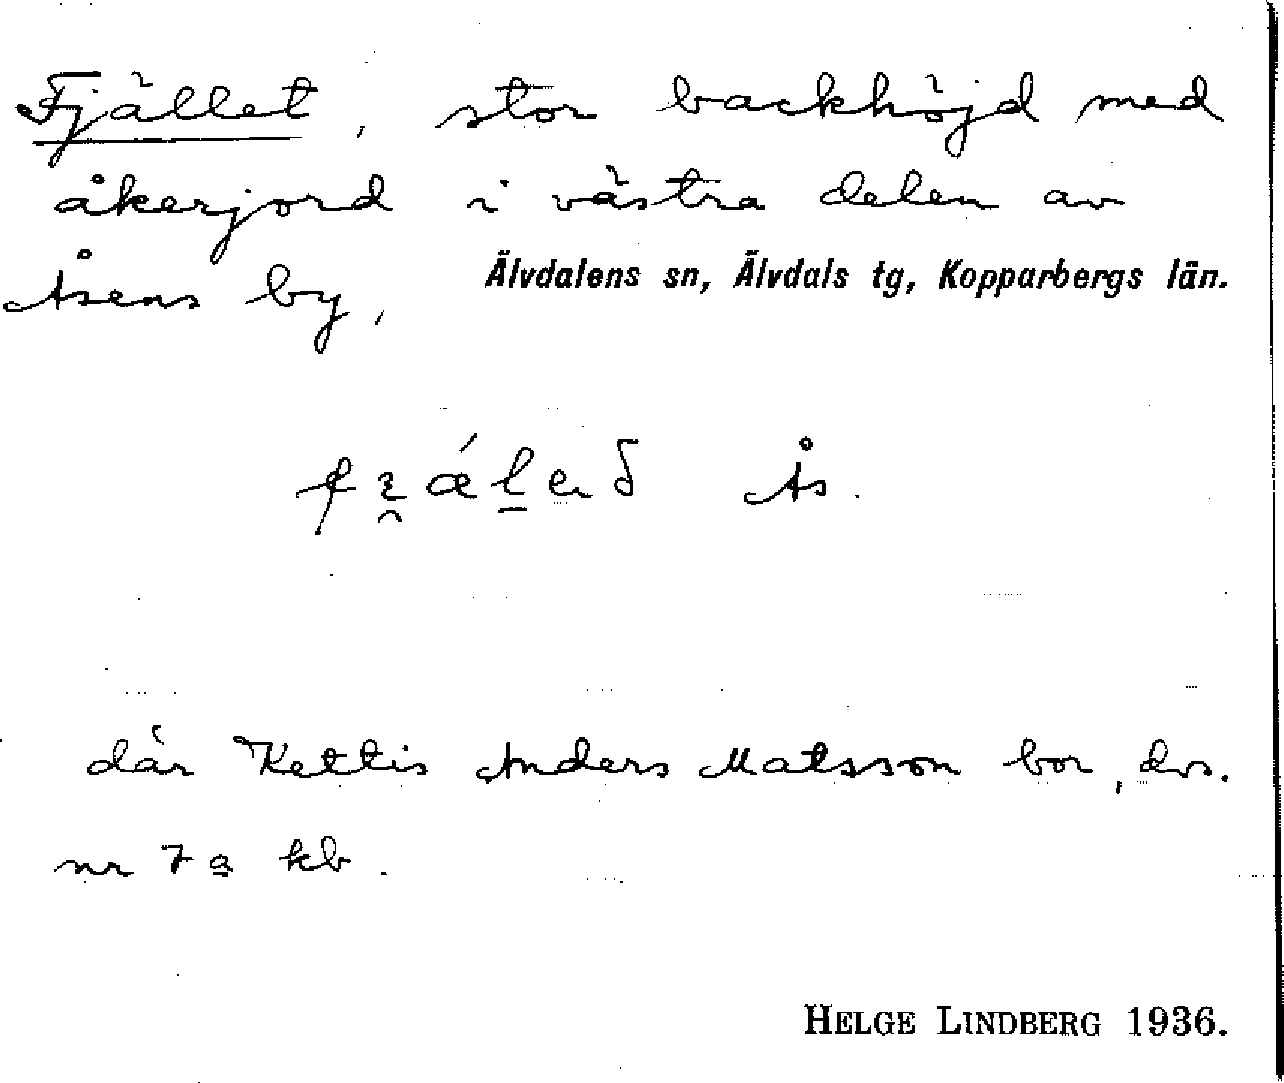 Fjället, stor backhöjd med
åkerjord i västra delen av
Åsens by, Älvdalens sn, Älvdals tg, Kopparbergs län.
Ås.
där Kettis Anders Matsson bor, dvs.
nr 7 a kb.
HELGE LINDBERG 1936.